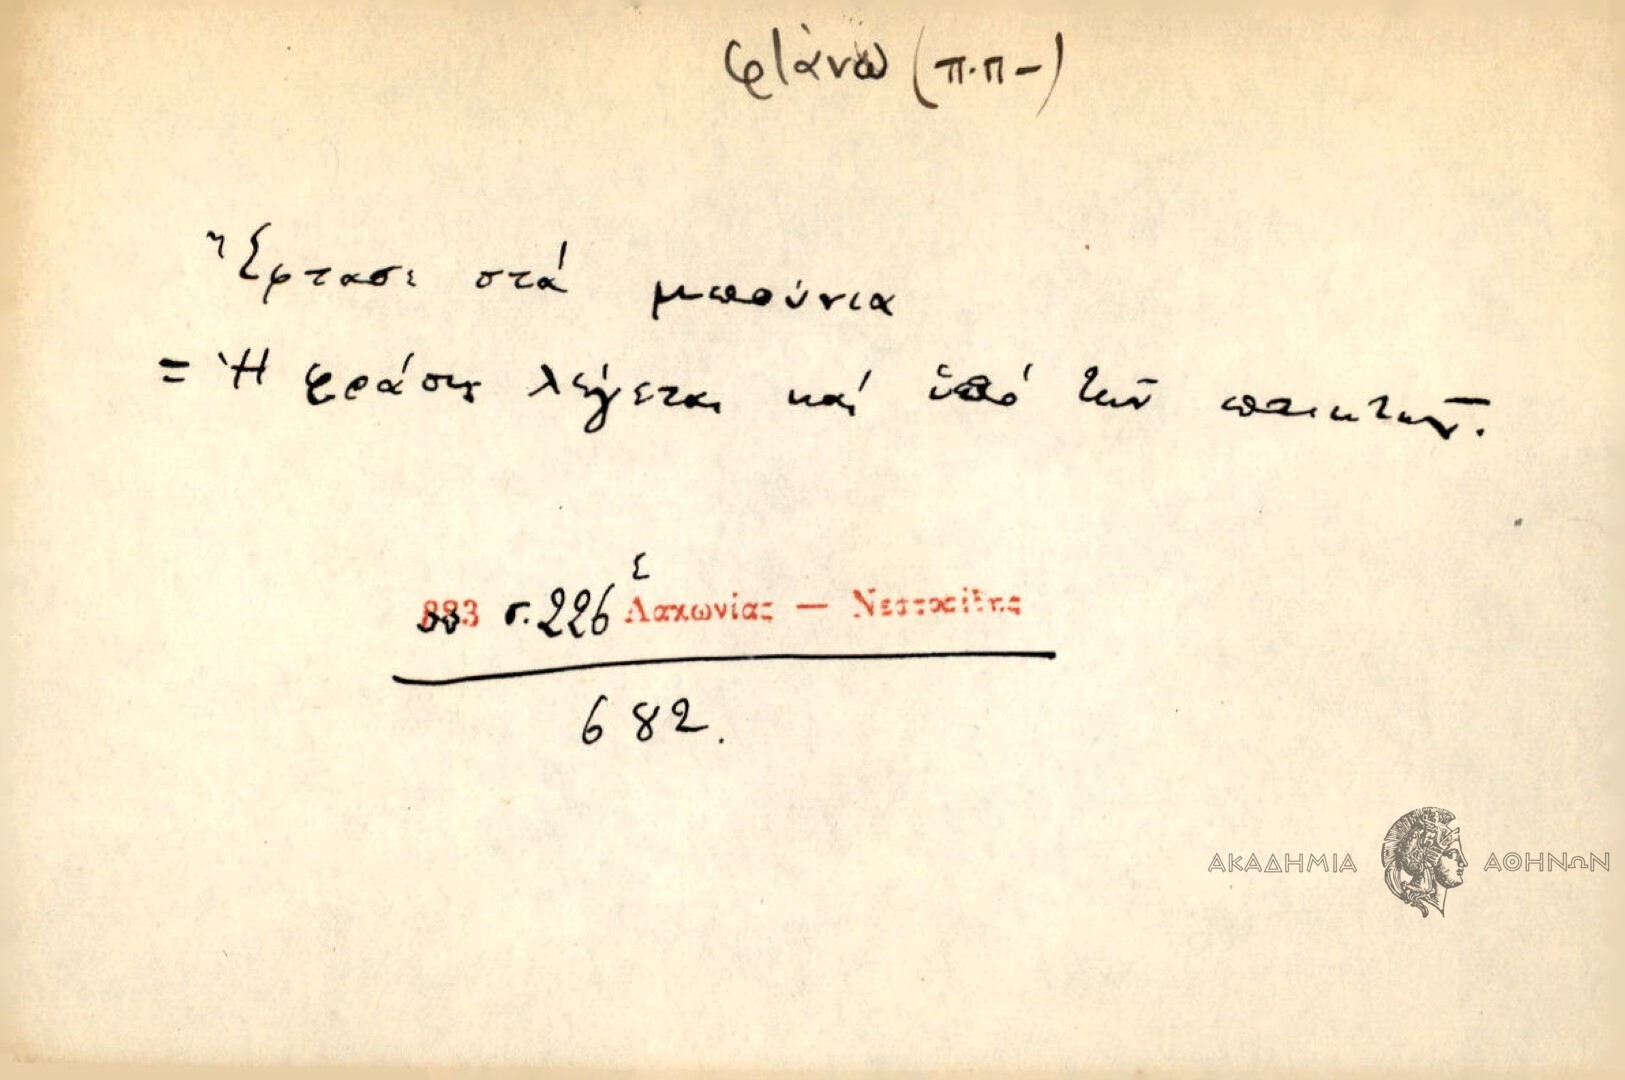 φτάνω (π.π-)
Ἔφτασε στά μπούνια
= Ἡ φράσις λέγεται καί ὑπό τῶν παικτῶν.
883 σ. 226 ε Λακωνίας — Νεστορίδης
682.
ΑΚΑΔΗΜΙΑ ΑΘΗΝΩΝ